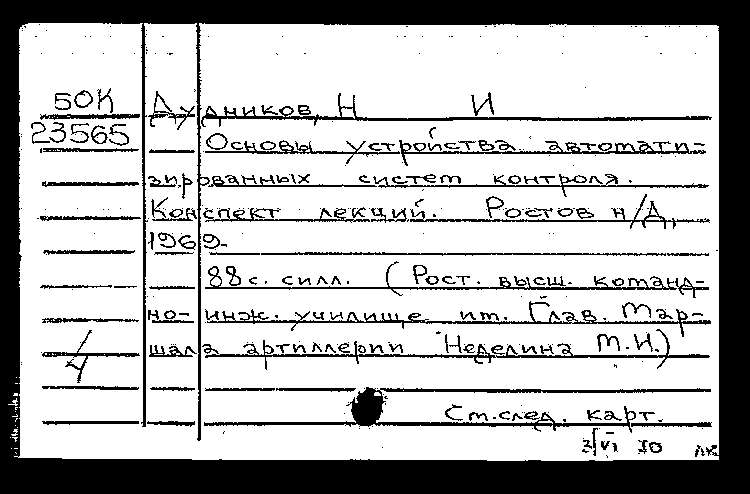 50К
23565
Дудников, Н И
Основы устройства автомати-
зированных систем контроля.
Конспект лекций. Ростов н/Д,
1969-
88 с. силл. (Рост. высш. команд-
но-инж. училище им. Глав. Мар-
шала артиллерии Неделина М.И.)
/4
См. след. карт.
3/VI 70 лк